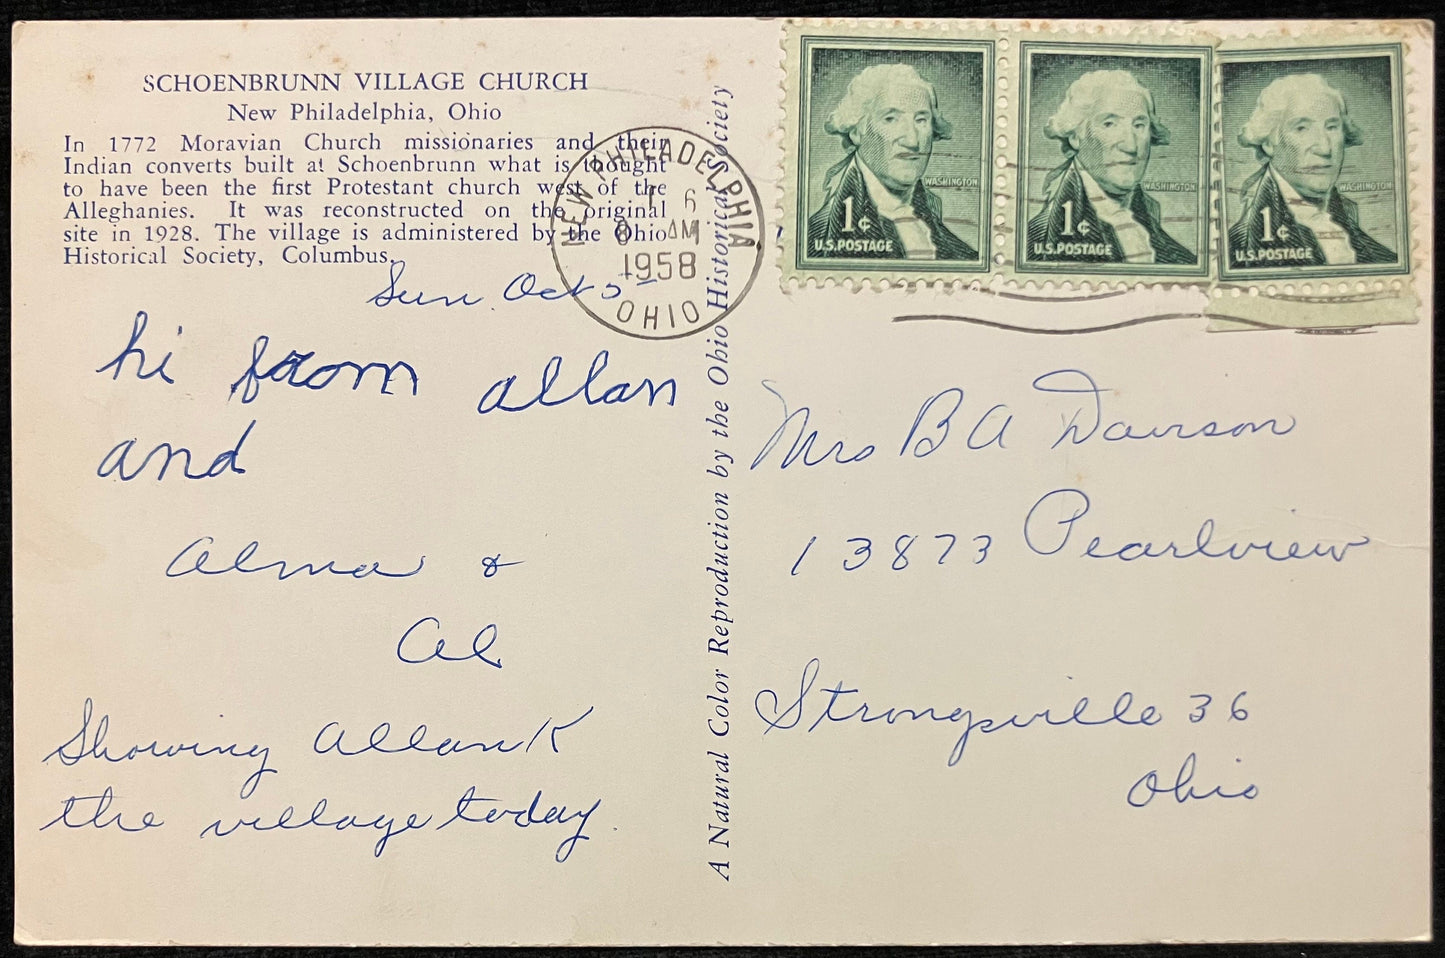 SCHOENBRUNN VILLAGE CHURCH
New Philadelphia, Ohio
In 1772 Moravian Church missionaries and their
Indian converts built at Schoenbrunn what is thought
to have been the first Protestant church west of the
Alleghanies. It was reconstructed on the original
site in 1928. The village is administered by the Ohio
Historical Society, Columbus.
Sun Oct 5
hi from allan
and
Alma &
Al
Showing Allan K
the village today.
A Natural Color Reproduction by the Ohio Historical Society
NEW PHILADELPHIA
6
8 AM
1958
OHIO
WASHINGTON
1¢
U.S. POSTAGE
WASHINGTON
1¢
U.S. POSTAGE
WASHINGTON
1¢
U.S. POSTAGE
Mrs B A Dawson
13873 Pearlview
Strongsville 36
Ohio